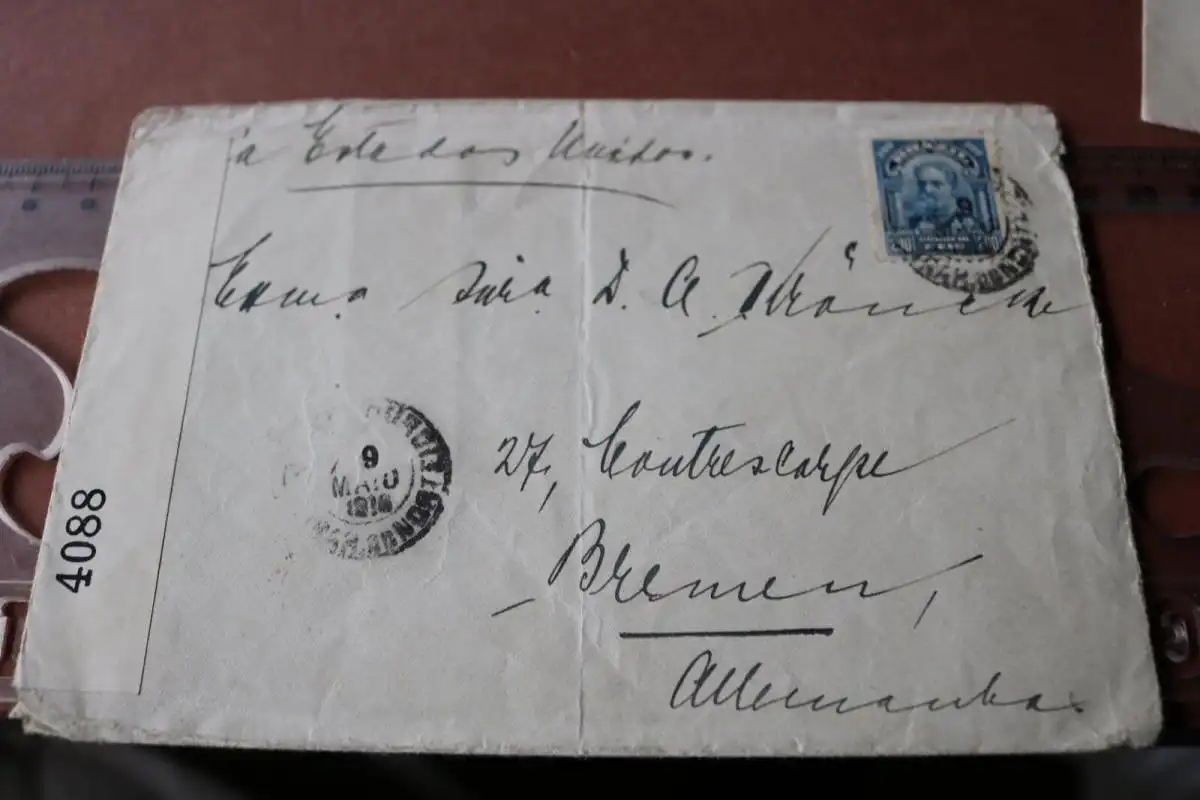 à Estados Unidos.
Exma Snra D. A.
27, Contrescarpe
Bremen,
Allemanha.
9
MAIO
4088